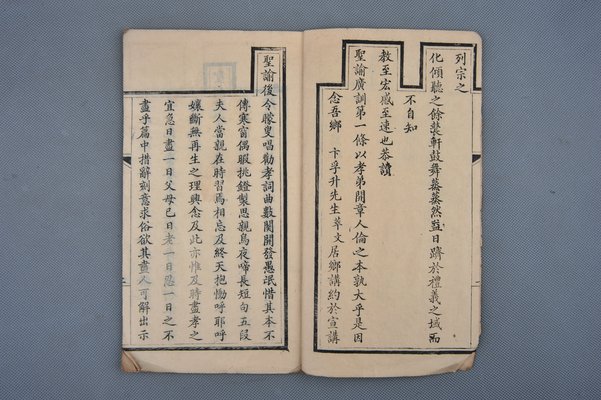 列宗之
化傾聽之餘軒鼓舞蒸蒸然益日躋於禮義之域而
不自知
教至宏感至速也恭讀
聖諭廣訓第一條以孝弟開章人倫之本孰大乎是因
念吾鄉 卞孚升先生萃文居鄉講約於宣講
聖諭後令矇叟唱勸孝詞曲數闋開發愚氓惜其本不
傳寒窗偶暇挑鐙製思親烏夜啼長短句五段
夫人當親在時習焉相忘及終天抱慟呼耶呼
孃斷無再生之理興念及此亦惟及時盡孝之
宜急日盡一日父母已日老一日急一日之不
盡乎篇中措辭刻意求俗欲其盡人可解出示